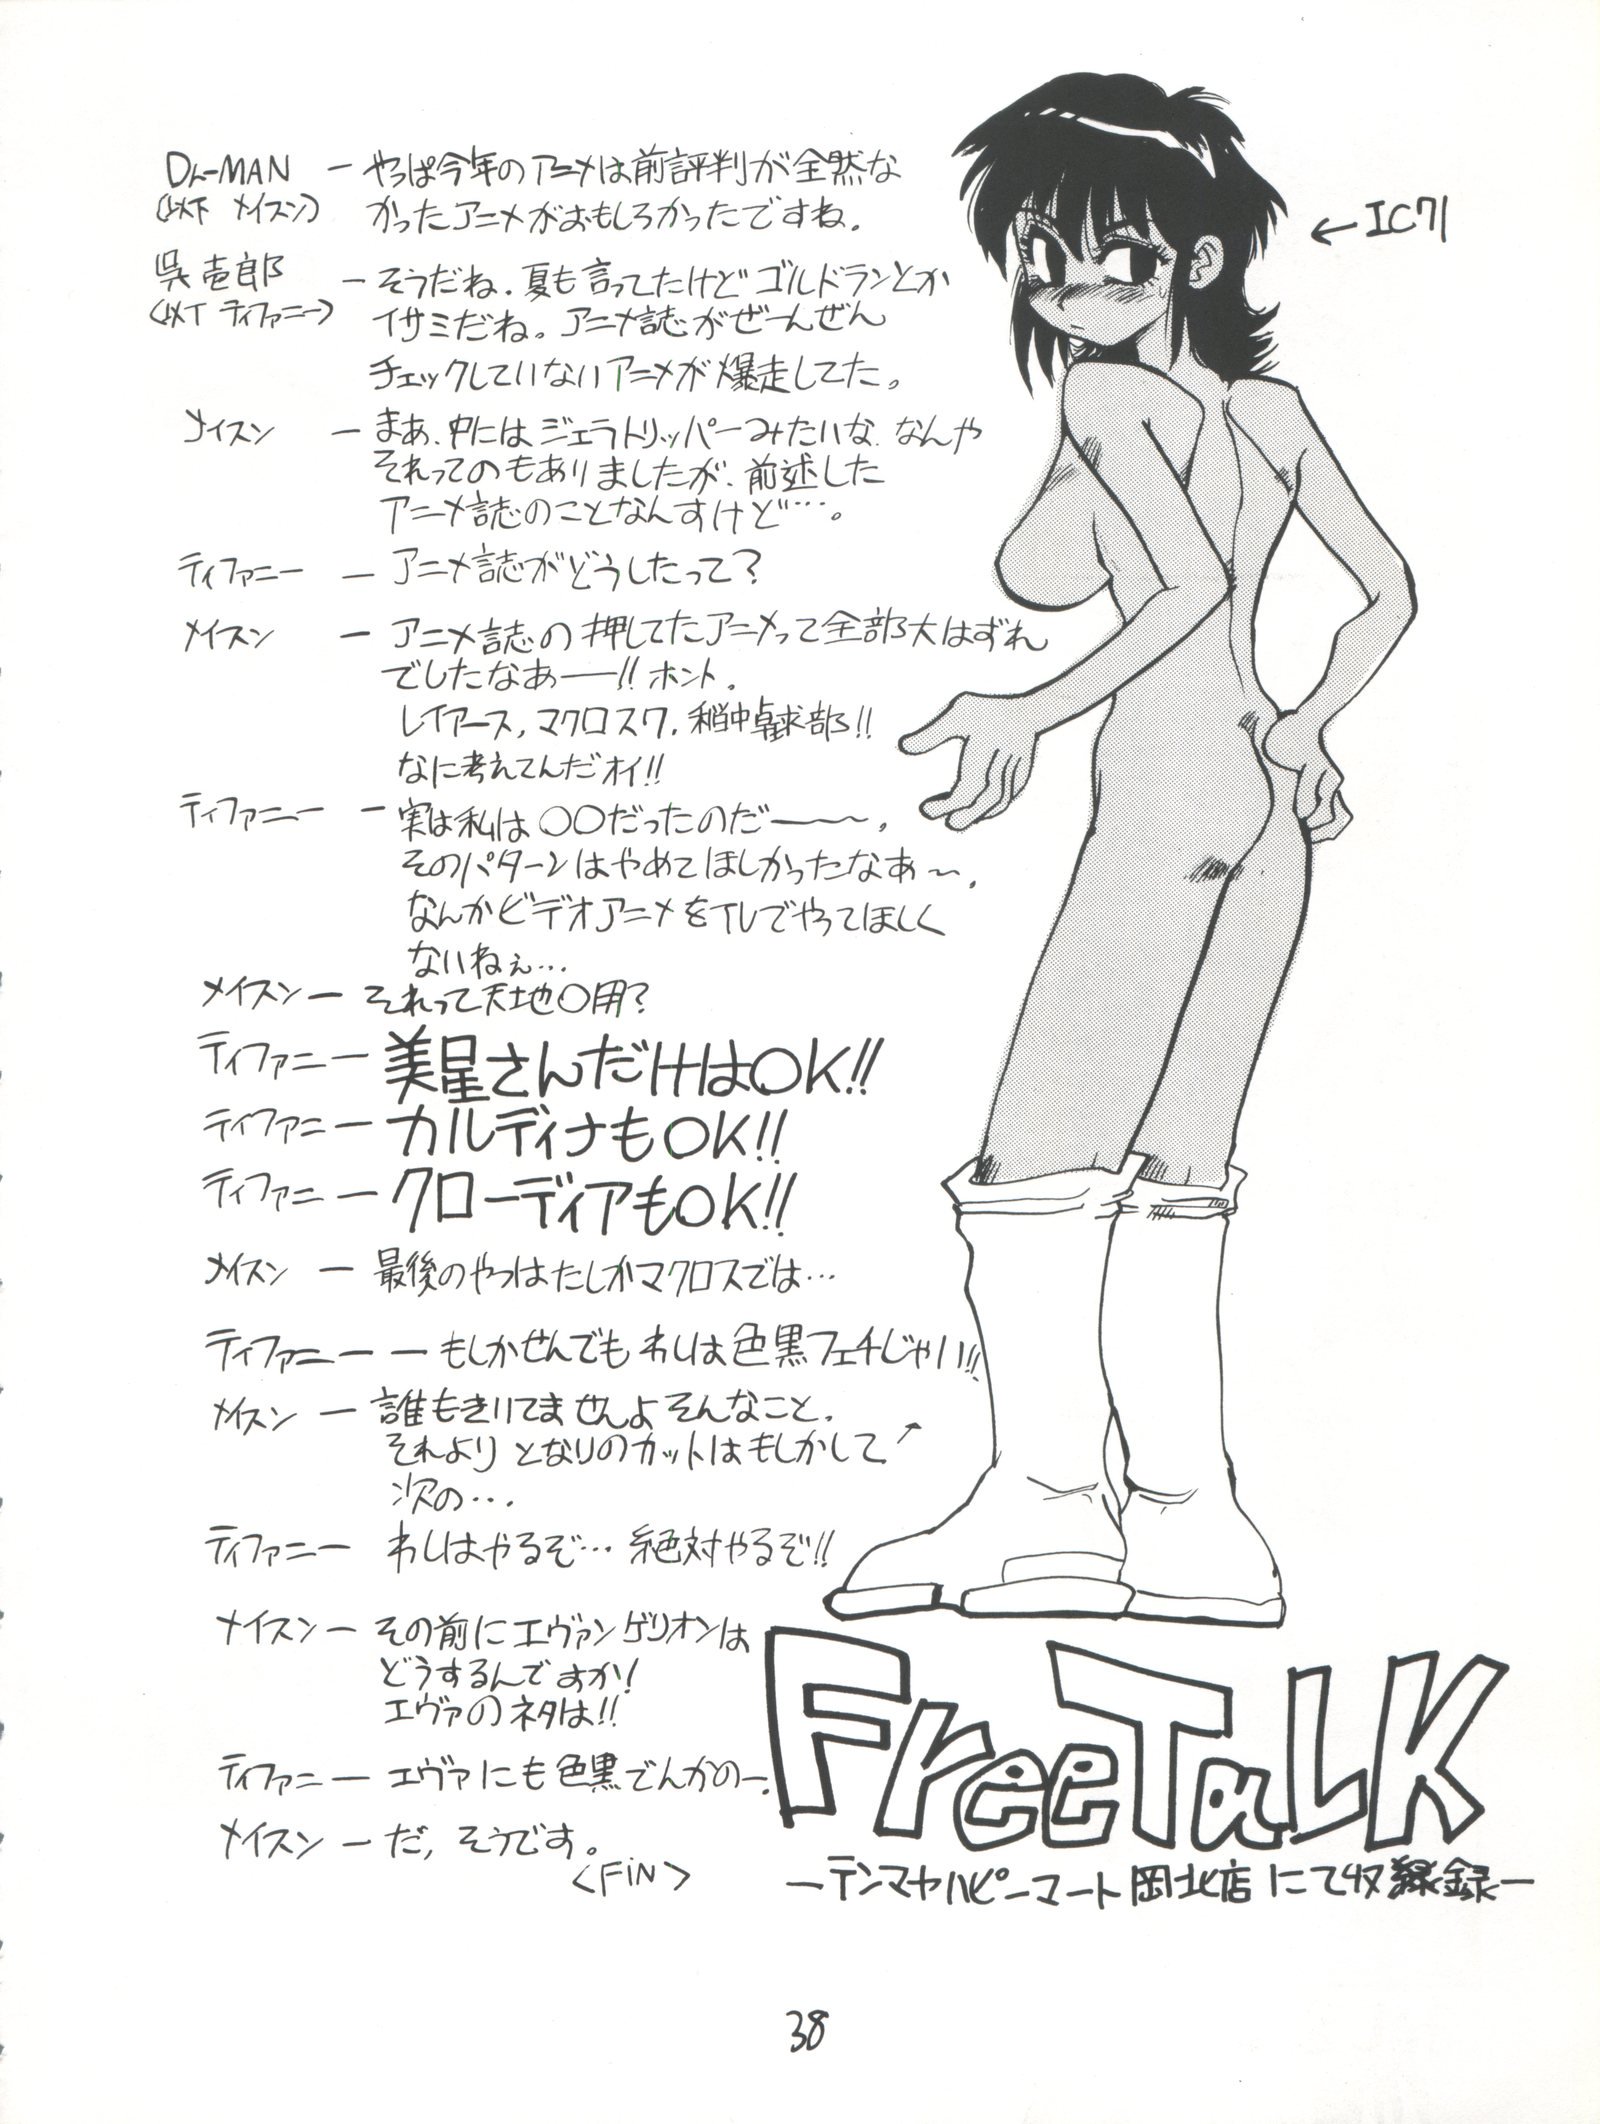 Dr-MAN ー やっぱ今年のアニメは前評判が全然な
(以下 メイスン) かったアニメがおもしろかったですね。
呉壱郎 ー そうだね.夏も言ってたけどゴルドランとか
(以下 ティファニー) イサミだね。アニメ誌がぜーんぜん
チェックしていないアニメが爆走してた。
メイスン ー まあ、中にはジェラトリッパーみたいな、なんや
それってのもありましたが、前述した
アニメ誌のことなんすけど…。
ティファニー ー アニメ誌がどうしたって?
メイスン ー アニメ誌の押してたアニメって全部大はずれ
でしたなあ──!! ホント.
レイアース,マクロス7,稲中卓球部!!
なに考えてんだオイ!!
ティファニー ー 実は私は〇〇だったのだ───〜.
そのパターンはやめてほしかったなあ〜.
なんかビデオアニメをTVでやってほしく
ないねぇ…
メイスン ー それって天地〇用?
ティファニー 美星さんだけはOK!!
ティファニー カルディナもOK!!
ティファニー クローディアもOK!!
メイスン ー 最後のやつはたしかマクロスでは…
ティファニー ー もしかせんでもわしは色黒フェチじゃい!!
メイスン ー 誰もきいてませんよそんなこと.
それより となりのカットはもしかして↗
次の….
ティファニー わしはやるぞ…絶対やるぞ!!
メイスン ー その前にエヴァンゲリオンは
どうするんですか!
エヴァのネタは!!
ティファニー エヴァにも色黒でんかのー.
メイスン ー だ,そうです。
<FiN>
← IC71
FreeTaLK
ーテンマヤハピーマート岡北店にて収録ー
38